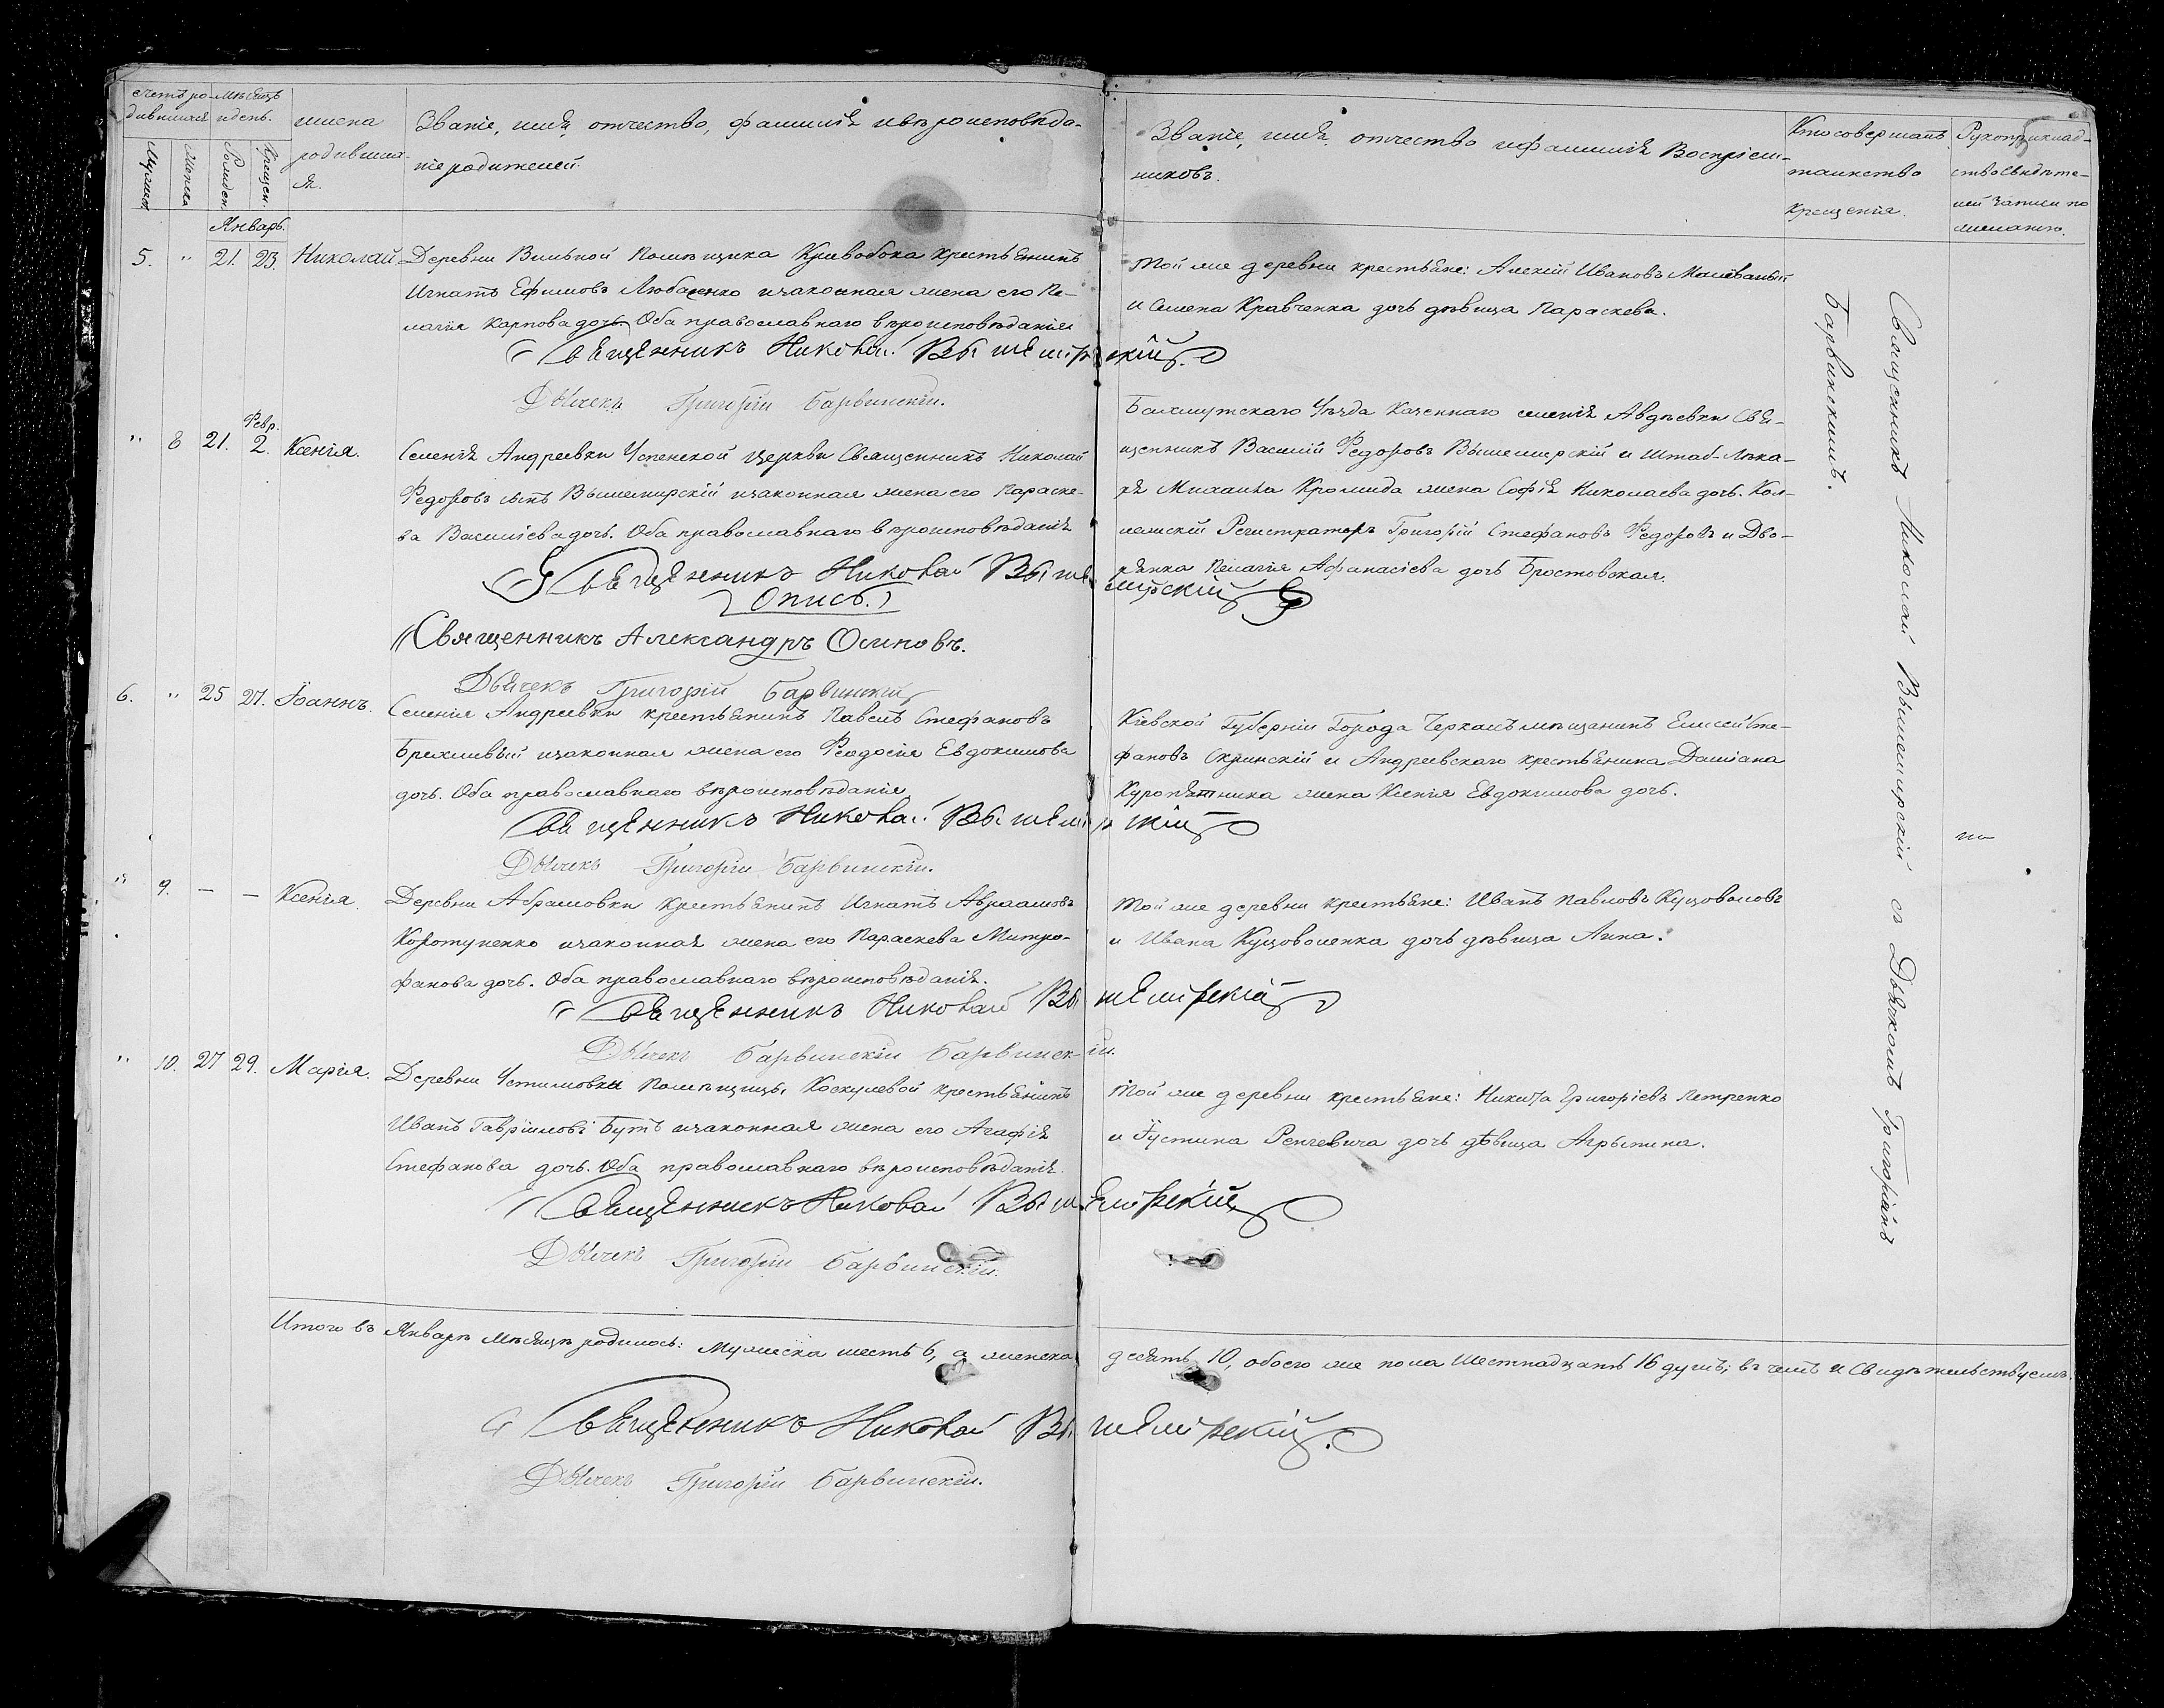 счетъ ро- мѣсяцъ
дившихся и день.
имена
родивших-
ся.
Званіе, имя, отчество, фамилія и вѣроисповѣда-
ніе родителей.
Мужеск.
Женска
Рожден.
Крещен.
Январь.
Званіе, имя, отчество и фамилія Воспріем-
никовъ.
Кто совершалъ
таинство
крещенія.
Рукоприклад-
ство свидѣте-
лей записи по
желанію.
5. " 21. 23. Николай
Деревни Вильной помѣщика Кривобока крестьянинъ
Игнатъ Ефимовъ Любаенко и законная жена его Пе-
лагия Карпова дочь. Оба православнаго вѣроисповѣданія
Священникъ Николай Вышемирскій
Дьячекъ Григорій Барвинскій.
Той же деревни крестьяне: Алексій Ивановъ
и Семена Кравченка дочь дѣвица Параскева.
" 8 21. Февр. 2. Ксенія.
Селенія Андреевки Успенской церкви Священникъ Николай
Федоровъ сынъ Вышемирскій и законная жена его Параске-
ва Василіева дочь. Оба православнаго вѣроисповѣданія
Священникъ Николай Вышемирскій
Опись.
Священникъ Александръ Осиповъ.
Дьячекъ Григорій Барвинскій
Бахмутскаго Уѣзда Казеннаго селенія Авдѣевки Свя-
щенникъ Василій Федоровъ Вышемирскій и Штаб-Лѣка-
ря Михаила Кромида жена Софія Николаева дочь. Кол-
лежскій Регистраторъ Григорій Стефановъ Федоровъ и Дво-
рянка Пелагия Афанасіева дочь Бростовская.
6. " 25 27. Іоаннъ.
Селенія Андреевки крестьянинъ Павелъ Стефановъ
Брехливый и законная жена его Феодосія Евдокимова
дочь. Оба православнаго вѣроисповѣданія
Священникъ Николай Вышемирскій
Дьячекъ Григорій Барвинскій.
Кіевской Губерніи Города Черкасъ мѣщанинъ Елисей Сте-
фановъ Скринскій и Андреевскаго крестьянина Даміана
Куропятника жена Ксенія Евдокимова дочь.
" 9. — — Ксенія.
Деревни Абрамовки крестьянинъ Игнатъ Авраамовъ
Коротуненко и законная жена его Параскева Митро-
фанова дочь. Оба православнаго вѣроисповѣданія.
Священникъ Николай Вышемирскій
Дьячекъ Барвинскій Барвинскій.
Той же деревни крестьяне: Иванъ Павловъ Куцоволовъ
и Ивана Куцоволенка дочь дѣвица Анна.
" 10. 27 29. Марія.
Деревни Устимовки помѣщицы Коскулевой крестьянинъ
Иванъ Гавріиловъ Бутъ и законная жена его Агафія
Стефанова дочь. Оба православнаго вѣроисповѣданія.
Священникъ Николай Вышемирскій
Дьячекъ Григорій Барвинскій.
Той же деревни крестьяне: Никита Григоріевъ Петренко
и Густина Репчевича дочь дѣвица Агрыпина.
Священникъ Николай Вышемирскій съ Дьячкомъ Григоріемъ
Барвинскимъ.
Итого въ Январѣ мѣсяцѣ родилось: мужеска шесть 6, а женска десять 10, обоего же пола шестнадцать 16 душъ; въ чемъ и свидѣтельствуемъ.
Священникъ Николай Вышемирскій.
Дьячекъ Григорій Барвинскій.